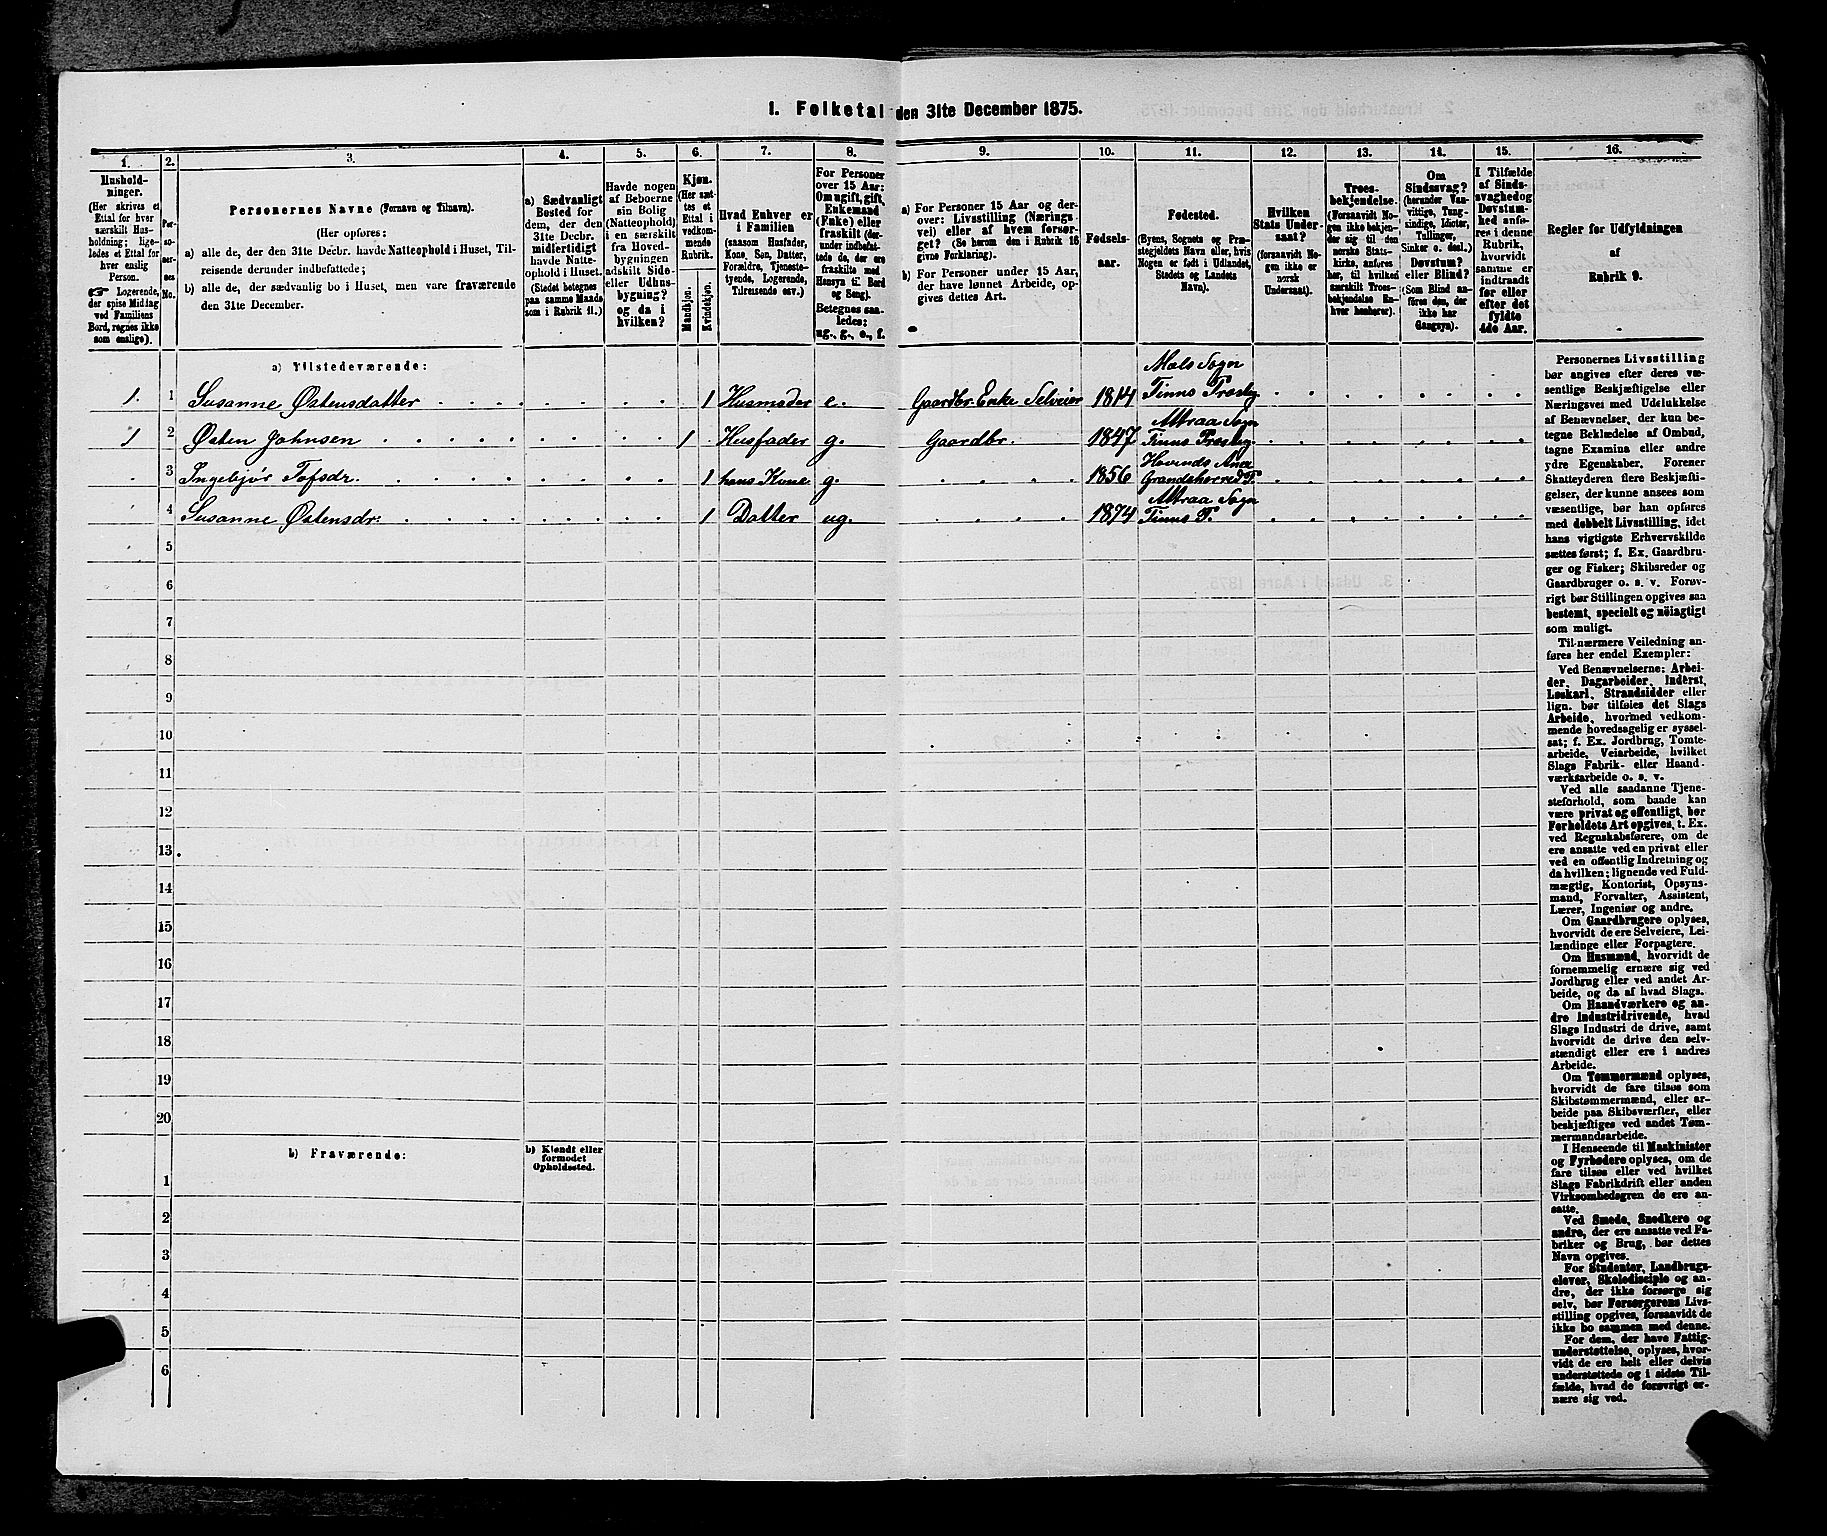 1. Folketal den 31te December 1875.
1.
Hushold-
ninger.
(Her skrives et
Ettal for hver
særskilt Hus-
holdning; lige-
ledes et Ettal for
hver enslig
Person.
☞ Logerende,
der spise Middag
ved Familiens
Bord, regnes ikke
som enslige).
2.
Per-
so-
ner-
nes
No.
3.
Personernes Navne (Fornavn og Tilnavn).
(Her opføres:
a) alle de, der den 31te Decbr. havde Natteophold i Huset, Til-
reisende derunder indbefattede;
b) alle de, der sædvanlig bo i Huset, men vare fraværende
den 31te December.
4.
a) Sædvanligt
Bosted for
dem, der den
31te Decbr.
midlertidigt
havde Natte-
ophold i Huset.
(Stedet betegnes
paa samme Maade
som i Rubrik 11.)
5.
Havde nogen
af Beboerne
sin Bolig
(Natteophold)
i en særskilt
fra Hoved-
bygningen
adskilt Side-
eller Udhus-
bygning?
og da i
hvilken?
6.
Kjøn.
(Her sæt-
tes et
Ettal i
vedkom-
mende
Rubrik.
Mandkjøn.
Kvindekjøn.
7.
Hvad Enhver er
i Familien
(saasom Husfader,
Kone, Søn, Datter,
Forældre, Tjeneste-
tyende, Logerende,
Tilreisende osv.)
8.
For Personer
over 15 Aar:
Om ugift, gift,
Enkemand
(Enke) eller
fraskilt (der-
under indbefat-
tede de, der ere
fraskilte med
Hensyn til Bord
og Seng).
Betegnes saa-
ledes:
ug., g., e., f.
9.
a) For Personer 15 Aar og der-
over: Livsstilling (Nærings-
vei) eller af hvem forsør-
get? (Se herom den i Rubrik 16
givne Forklaring).
b) For Personer under 15 Aar,
der have lønnet Arbeide, op-
gives dettes Art.
10.
Fødsels-
aar.
11.
Fødested.
(Byens, Sognets og Præ-
stegjeldets Navn eller, hvis
Nogen er født i Udlandet,
Stedets og Landets
Navn).
12.
Hvilken
Stats Under-
saat?
(forsaavidt No-
gen ikke er
norsk
Undersaat).
13.
Troes-
bekjendelse.
(Forsaavidt No-
gen ikke bekjen-
der sig til den
norske Stats-
kirke, anføres
her, til hvilken
særskilt Troes-
bekjendelse En-
hver henhører).
14.
Om
Sindssvag?
(herunder Van-
vittige, Tung-
sindige, Idioter,
Tullinger,
Sinker o. desl.)
Døvstum?
eller Blind?
(Som Blind an-
føres den, der
ikke har
Gangsyn).
15.
I Tilfælde
af Sinds-
svaghed og
Døvstum-
hed anfø-
res i denne
Rubrik,
hvorvidt
samme er
indtraadt
før eller
efter det
fyldte
4de Aar.
16.
Regler for Udfyldningen
af
Rubrik 9.
a) Tilstedeværende:
1. 1 Susanne Østensdatter 1 Husmoder e. Gaardbr. Enke Selveier 1814 Mæls Sogn Tinns Præstg
1 2 Østen Johnsen 1 Husfader g. Gaardbr. 1847 Attraa Sogn Tinns Præstg
3 Ingebjør Tofsdr. 1 hans Kone g. 1856 Hovinds Anex Grandsherred P.
4 Susanne Østensdr: 1 Datter ug. 1874 Attraa Sogn Tinns P.
5
6
7
8
9
10
11
12
13
14
15
16
17
18
19
20
b) Fraværende:
b) Kjendt eller
formodet
Opholdssted.
1
2
3
4
5
6
Personernes Livsstilling
bør angives efter deres væ-
sentlige Beskjæftigelse eller
Næringsvei med Udelukkelse
af Benævnelser, der kun be-
tegne Beklædelse af Ombud,
tagne Examina eller andre
ydre Egenskaber. Forener
Skatteyderen flere Beskjæfti-
gelser, der kunne ansees som
væsentlige, bør han opføres
med dobbelt Livsstilling, idet
hans vigtigste Erhvervskilde
sættes først; f. Ex. Gaardbru-
ger og Fisker; Skibsreder og
Gaardbruger o. s. v. Forøv-
rigt bør Stillingen opgives saa
bestemt, specielt og nöiagtigt
som muligt.
Til nærmere Veiledning an-
føres her endel Exempler:
Ved Benævnelserne: Arbei-
der, Dagarbeider, Inderst,
Løskarl, Strandsidder eller
lign. bør tilføies det Slags
Arbeide, hvormed vedkom-
mende hovedsagelig er syssel-
sat; f. Ex. Jordbrug, Tomte-
arbeide, Veiarbeide, hvilket
Slags Fabrik- eller Haand-
værksarbeide o. s. v.
Ved alle saadanne Tjene-
steforhold, som baade kan
være privat og offentligt, bør
Forholdets Art opgives, t. Ex.
ved Regnskabsførere, om de
ere ansatte ved en privat eller
ved en offentlig Indretning og
da hvilken; lignende ved Fuld-
mægtig, Kontorist, Opsyns-
mand, Forvalter, Assistent,
Lærer, Ingeniør og andre.
Om Gaardbrugere oplyses,
hvorvidt de ere Selveiere, Lei-
lændinge eller Forpagtere.
Om Husmænd, hvorvidt de
fornemmelig ernære sig ved
Jordbrug eller ved andet Ar-
beide, og da af hvad Slags.
Om Haandværkere og an-
dre Industridrivende, hvad
Slags Industri de drive, samt
hvorvidt de drive den selv-
stændigt eller ere i andres
Arbeide.
Om Tømmermænd oplyses,
hvorvidt de fare tilsøs som
Skibstømmermænd, eller ar-
beide paa Skibsværfter, eller
beskjæftiges ved andet Tøm-
mermandsarbeide.
I Henseende til Maskinister
og Fyrbødere oplyses, om de
fare tilsøs eller ved hvilket
Slags Fabrikdrift eller anden
Virksomhedsgren de ere an-
satte.
Ved Smede, Snedkere og
andre, der ere ansatte ved Fa-
briker og Brug, bør dettes
Navn opgives.
For Studenter, Landbrugs-
elever, Skoledisciple og an-
dre, der ikke forsørge sig
selv, bør Forsørgerens Livs-
stilling opgives, forsaavidt de
ikke bo sammen med denne.
For dem, der have Fattig-
understøttelse, oplyses, hvor-
vidt de ere helt eller delvis
understøttede og i sidste Til-
fælde, hvad de forøvrigt er-
nære sig ved.